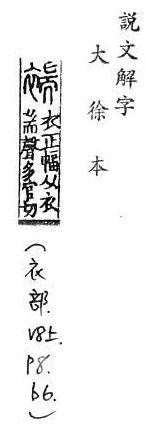 說文解字
大徐本
衣正幅从衣
耑聲多官切
(衣部.
P8.
66.)